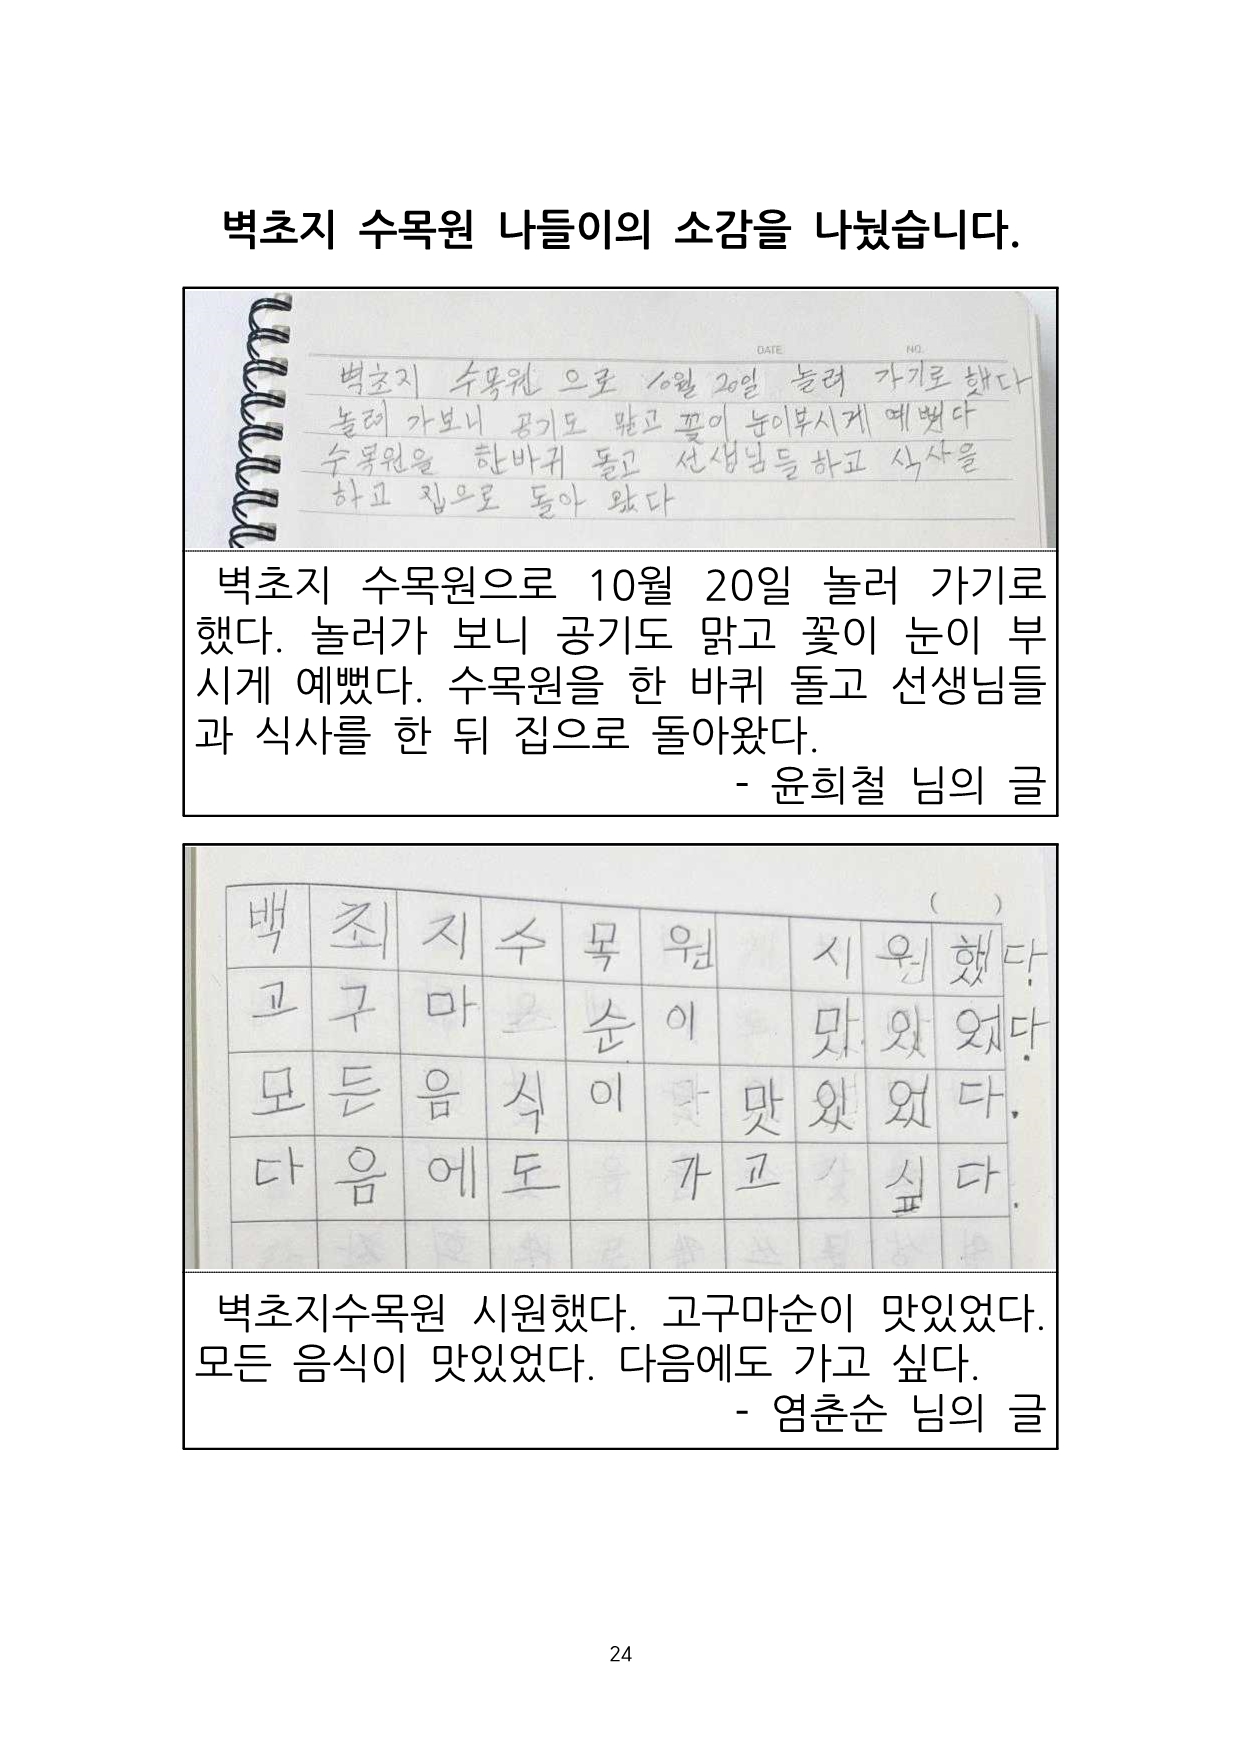 벽초지 수목원 나들이의 소감을 나눴습니다.
DATE NO.
벽초지 수목원 으로 10월 20일 놀러 가기로 했다
놀러 가보니 공기도 맑고 꽃이 눈이부시게 예뻤다
수목원을 한바퀴 돌고 선생님들 하고 식사을
하고 집으로 돌아 왔다
벽초지 수목원으로 10월 20일 놀러 가기로
했다. 놀러가 보니 공기도 맑고 꽃이 눈이 부
시게 예뻤다. 수목원을 한 바퀴 돌고 선생님들
과 식사를 한 뒤 집으로 돌아왔다.
- 윤희철 님의 글
( )
백최지수목원 시원했다.
고구마 순이 맛있었다.
모든음식이 맛있었다.
다음에도 가고 싶다.
벽초지수목원 시원했다. 고구마순이 맛있었다.
모든 음식이 맛있었다. 다음에도 가고 싶다.
- 염춘순 님의 글
24